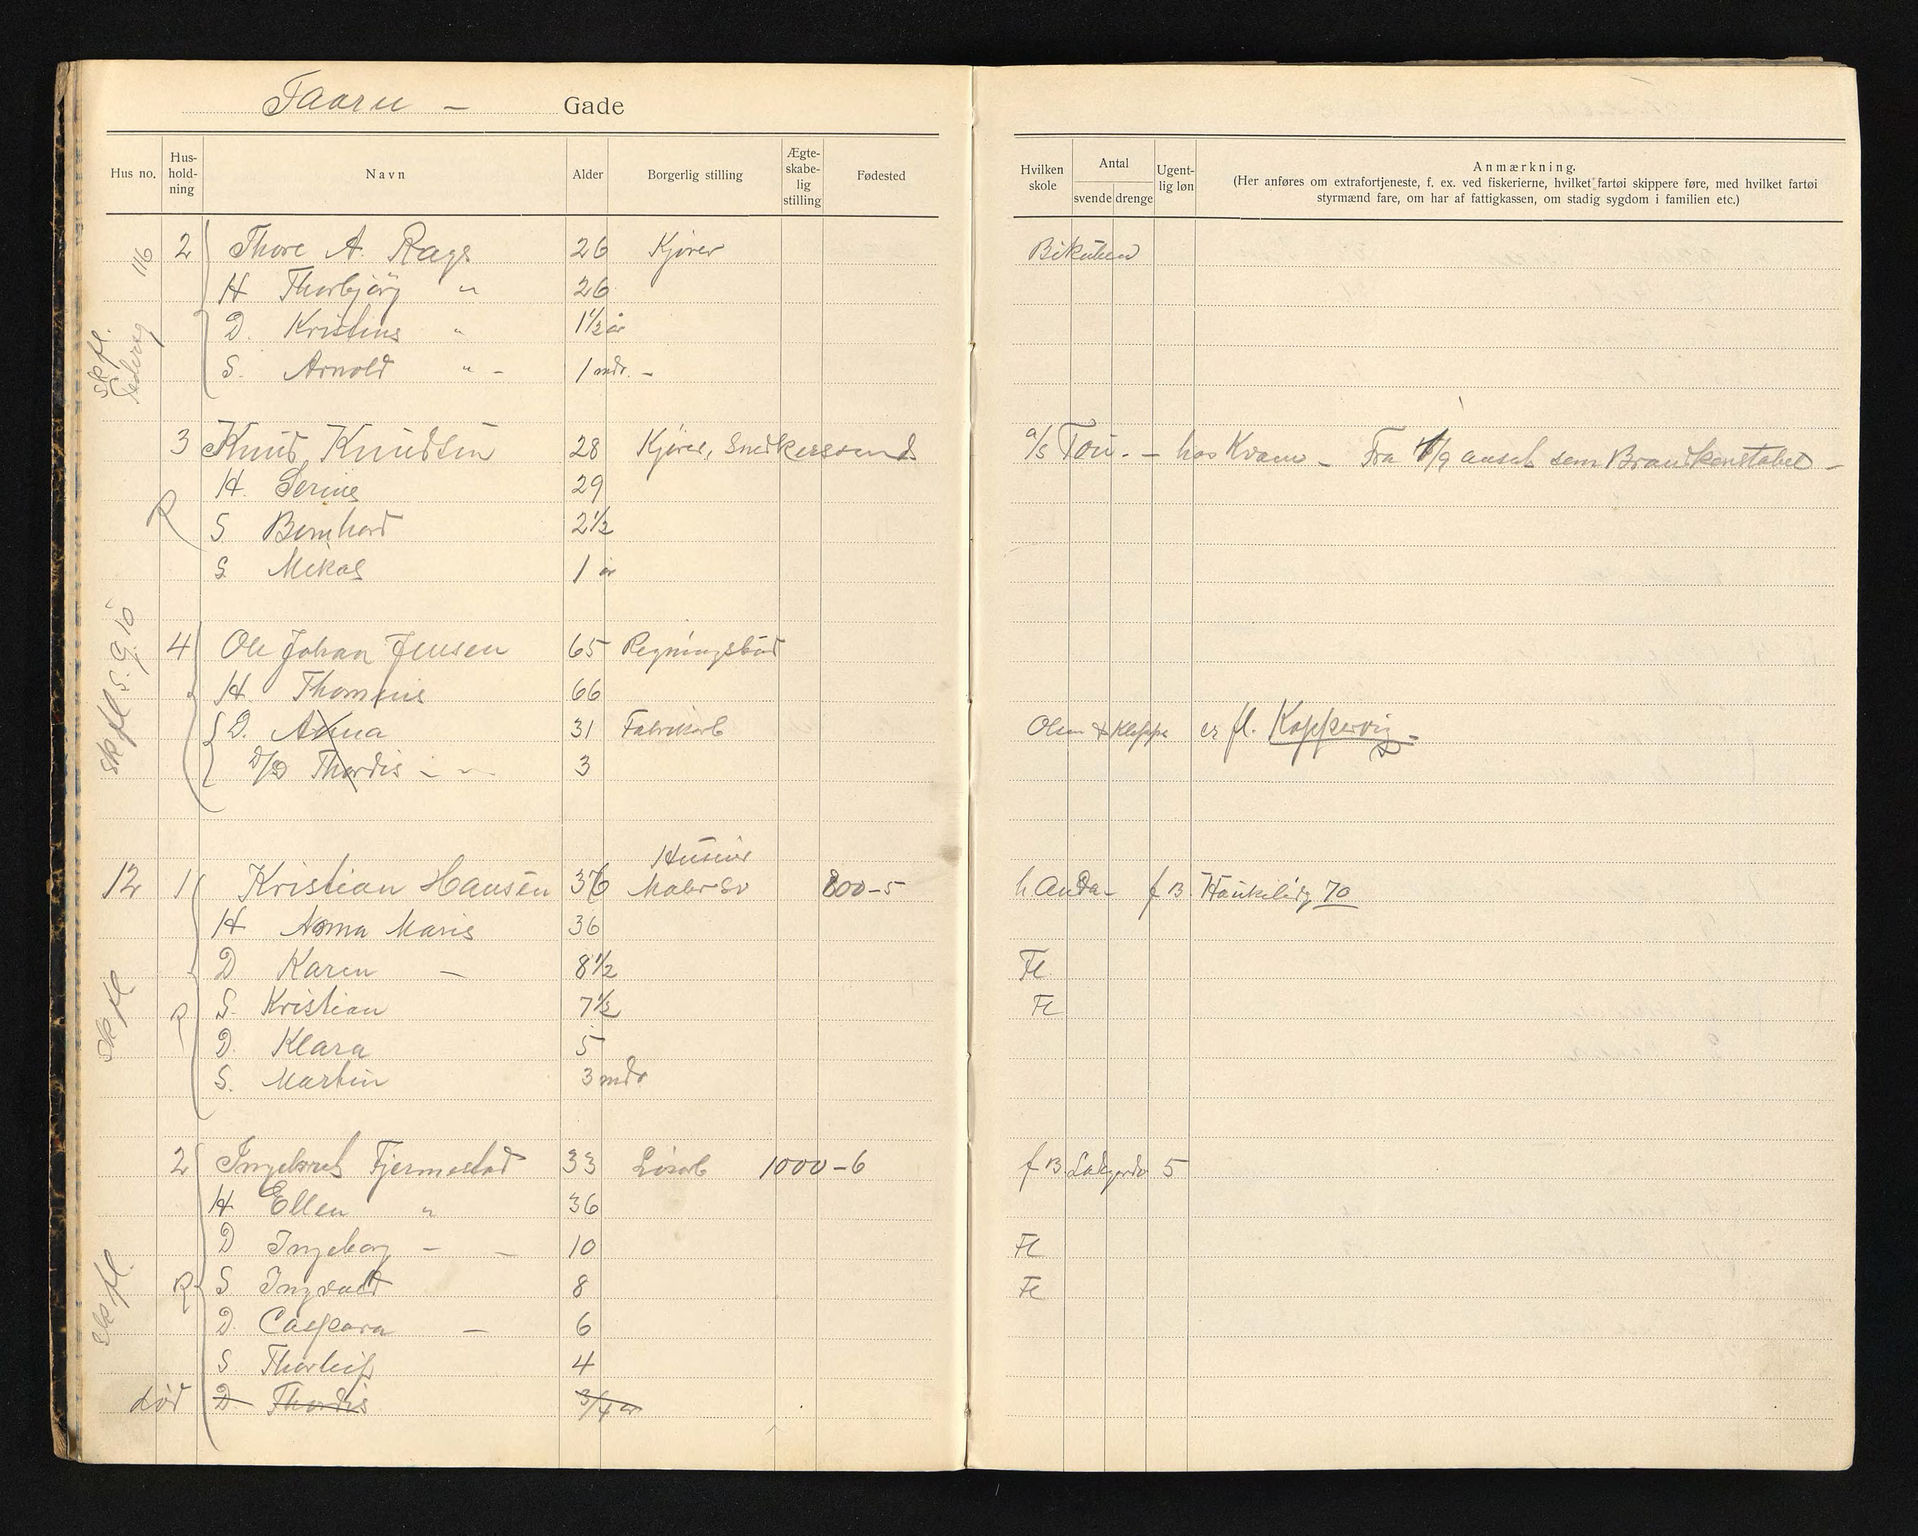 Taaru - Gade
Hus no. Hus-holdning Navn Alder Borgerlig stilling Ægte-skabe-lig stilling Fødested Hvilken skole Antal svende drenge Ugent-lig løn Anmærkning.
(Her anføres om extrafortjeneste, f. ex. ved fiskerierne, hvilket fartøi skippere føre, med hvilket fartøi
styrmænd fare, om har af fattigkassen, om stadig sygdom i familien etc.)
116 2 Thore A. Rags 26 Kjører Bikuben
H Thorbjörg " 26
D. Kristine " 1 1/2 år
sk fl. Pedersg
S. Arnold " - 1 mdr. -
3 Knud Knudsen 28 Kjører, Snekkersvend a/s Tou. - hos Kvam - Fra 1/9 ansat som Brandkonstabel -
H. Serine 29
R S. Bernhard 2 1/2
S. Mikal 1 år
sk fl S. G. 10
4 Ole Johan Jensen 65 Regningsbud
H. Thomine 66
D. Anna 31 Fabrikarb Olsen & Kleppe er fl. Koppervig -
D/D Thordis - " - 3
Huseier
12 1 Kristian Hansen 36 Maler Sv 800-5 h Anda - f B. Haukeligt 70
H Anna Marie 36
D Karen - 8 1/2 Fl.
sk fl
R S. Kristian 7 1/2 Fl
D. Klara 5
S. Martin 3 mdr
2 Ingebret Fjermestad 33 Løsarb 1000-6 f B. Ladegårdv 5
H Ellen " 36
D Ingeborg - - 10 Fl
sk fl.
R S Ingvald 8 Fl
D. Caspara - 6
S. Thorleif 4
død D Thordis 3/4 år